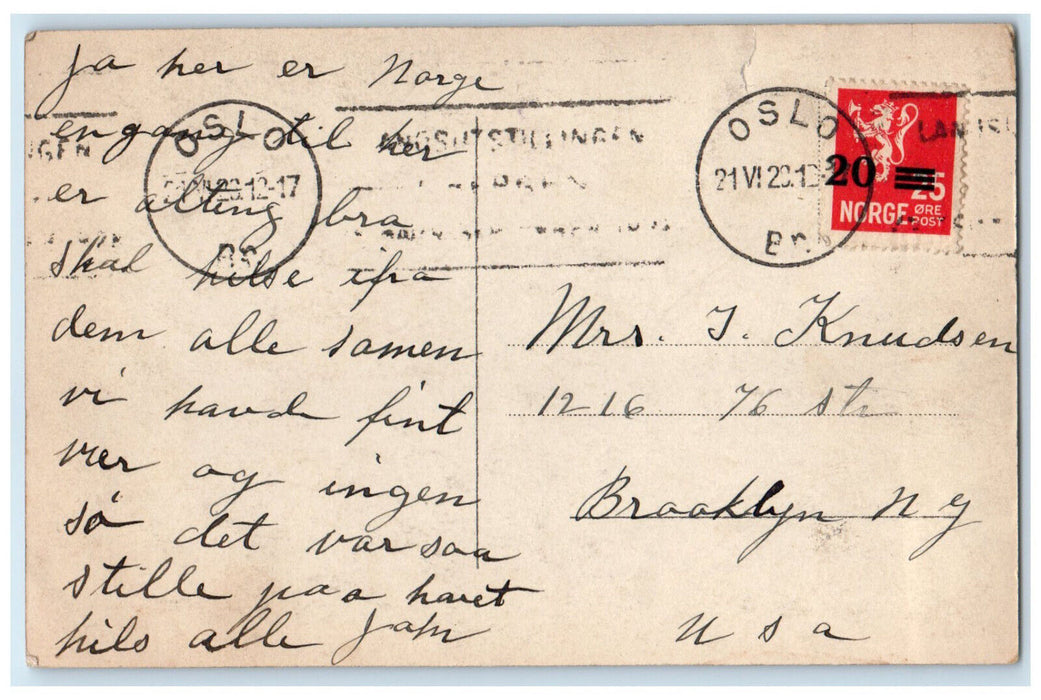 Ja her er Norge
engang til her
er alting bra
skal hilse ifra
dem alle samen
vi havde fint
vær og ingen
sø det var saa
stille paa havet
hils alle
OSLO
12-17
Br.
OSLO
21 VI 28.12
Br.
20
25
NORGE ØRE
POST
Mrs. J. Knudsen
1216 76 str
Brooklyn N Y
U S A